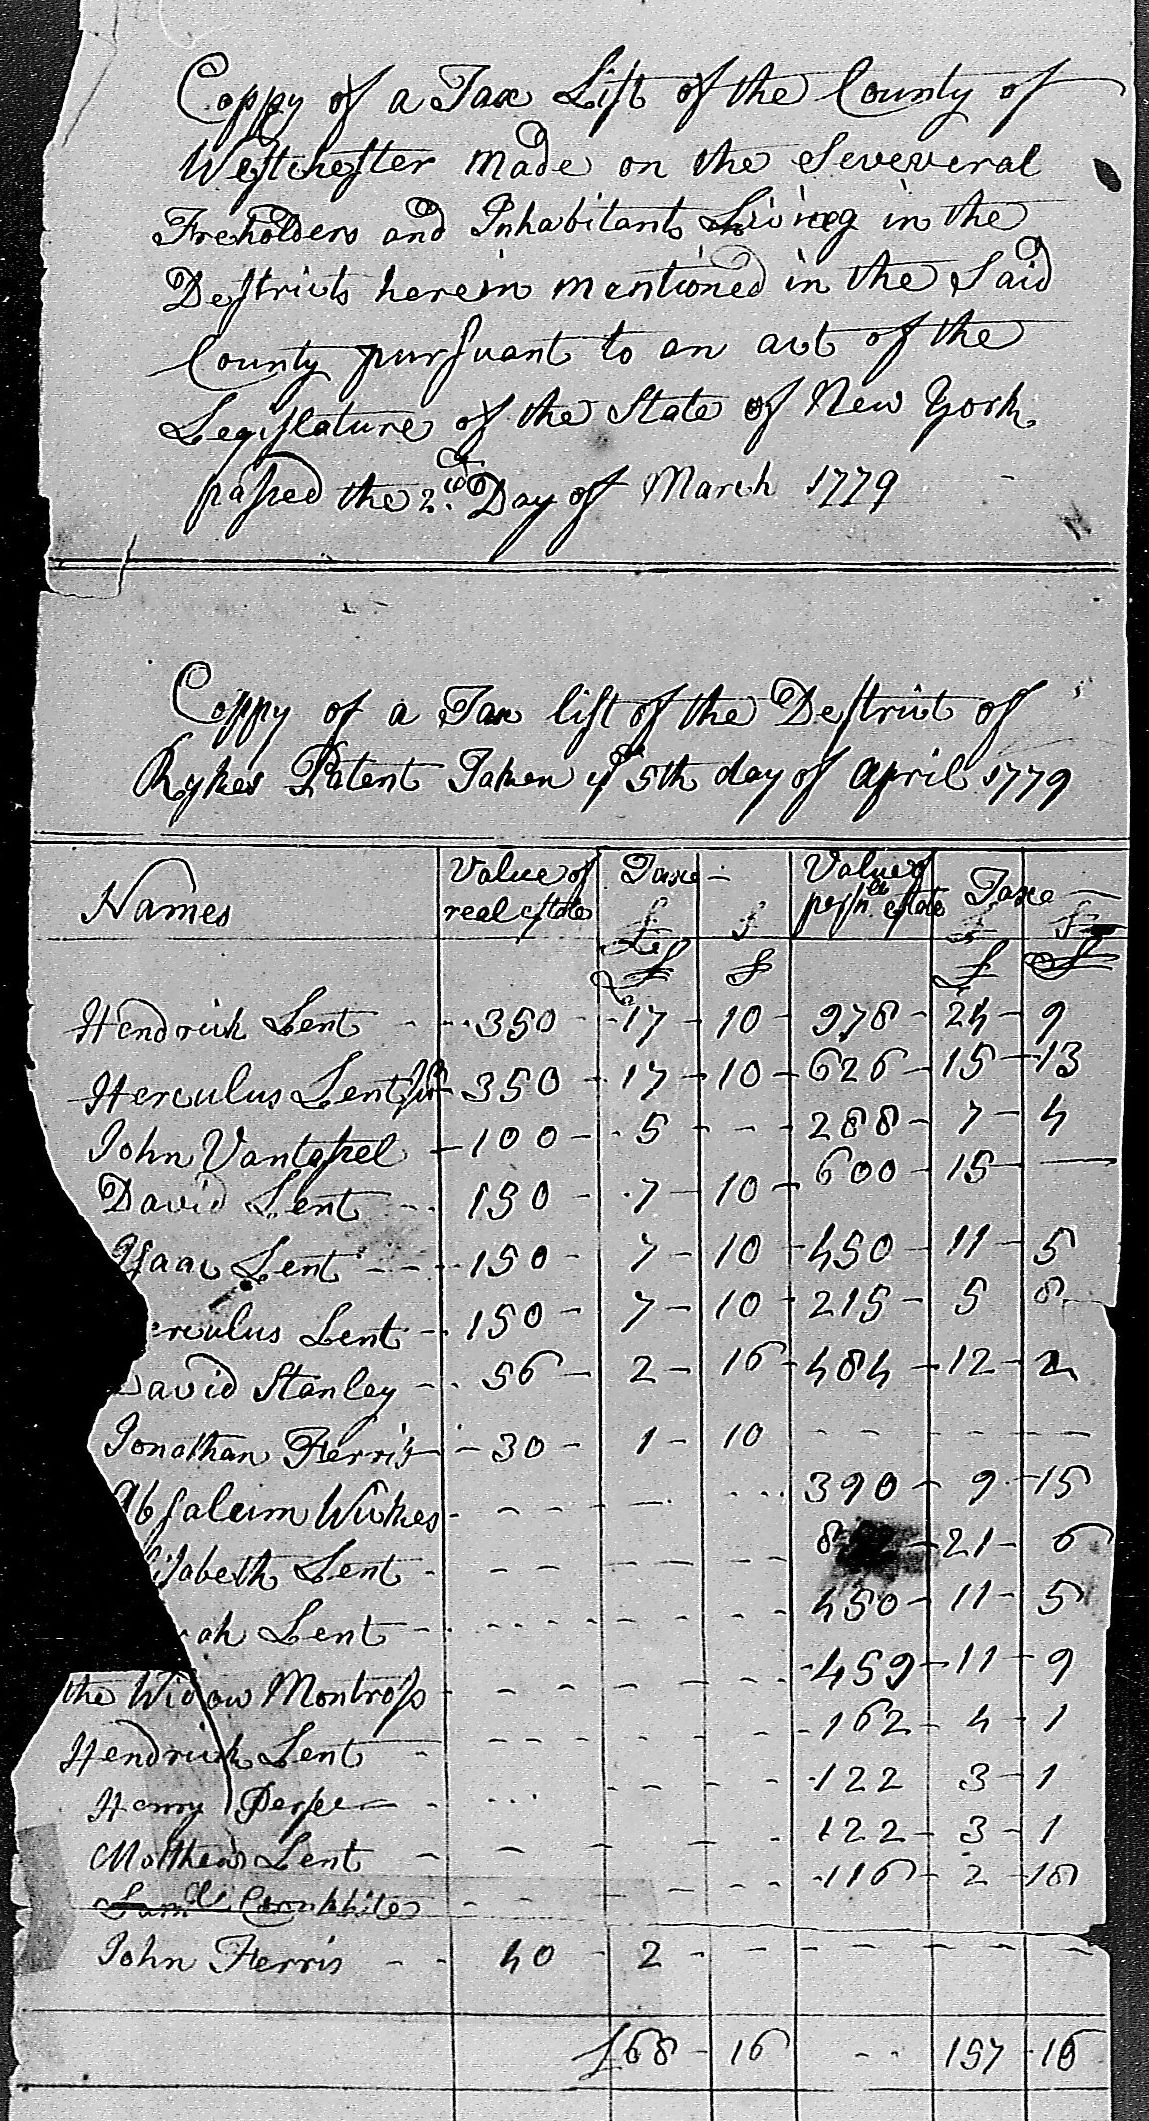 Coppy of a Tax List of the County of
Westchester made on the Seveveral
Freholders and Inhabitants Living in the
Destricts herein mentioned in the Said
County pursuant to an act of the
Legislature of the State of New York
passed the 2nd Day of March 1779
Coppy of a Tax list of the Destrict of
Rykes Patent Taken ye 5th day of april 1779
Names Value of real estate Taxe £ S Value of persnll estate Taxe £ S
Hendrick Lent 350 17 10 978 24 9
Herculus Lent Jur 350 17 10 626 15 13
John Vantassel 100 5 - 288 7 4
David Lent 150 7 10 600 15 -
Isaac Lent 150 7 10 450 11 5
erculus Lent 150 7 10 215 5 8
David Stanley 56 2 16 484 12 2
Jonathan Ferris 30 1 10 - - -
Absaleim Wickes - - - 390 9 15
lisabeth Lent - - - 21 6
rah Lent - - - 450 11 5
the Widow Montross - - - 459 11 9
Hendrick Lent - - - 162 4 1
Henry - - - 122 3 1
Mathew Lent - - - 122 3 1
Samll Cronkhite - - - 116 2 18
John Ferris 40 2 - - - -
£68 16 - - 157 16